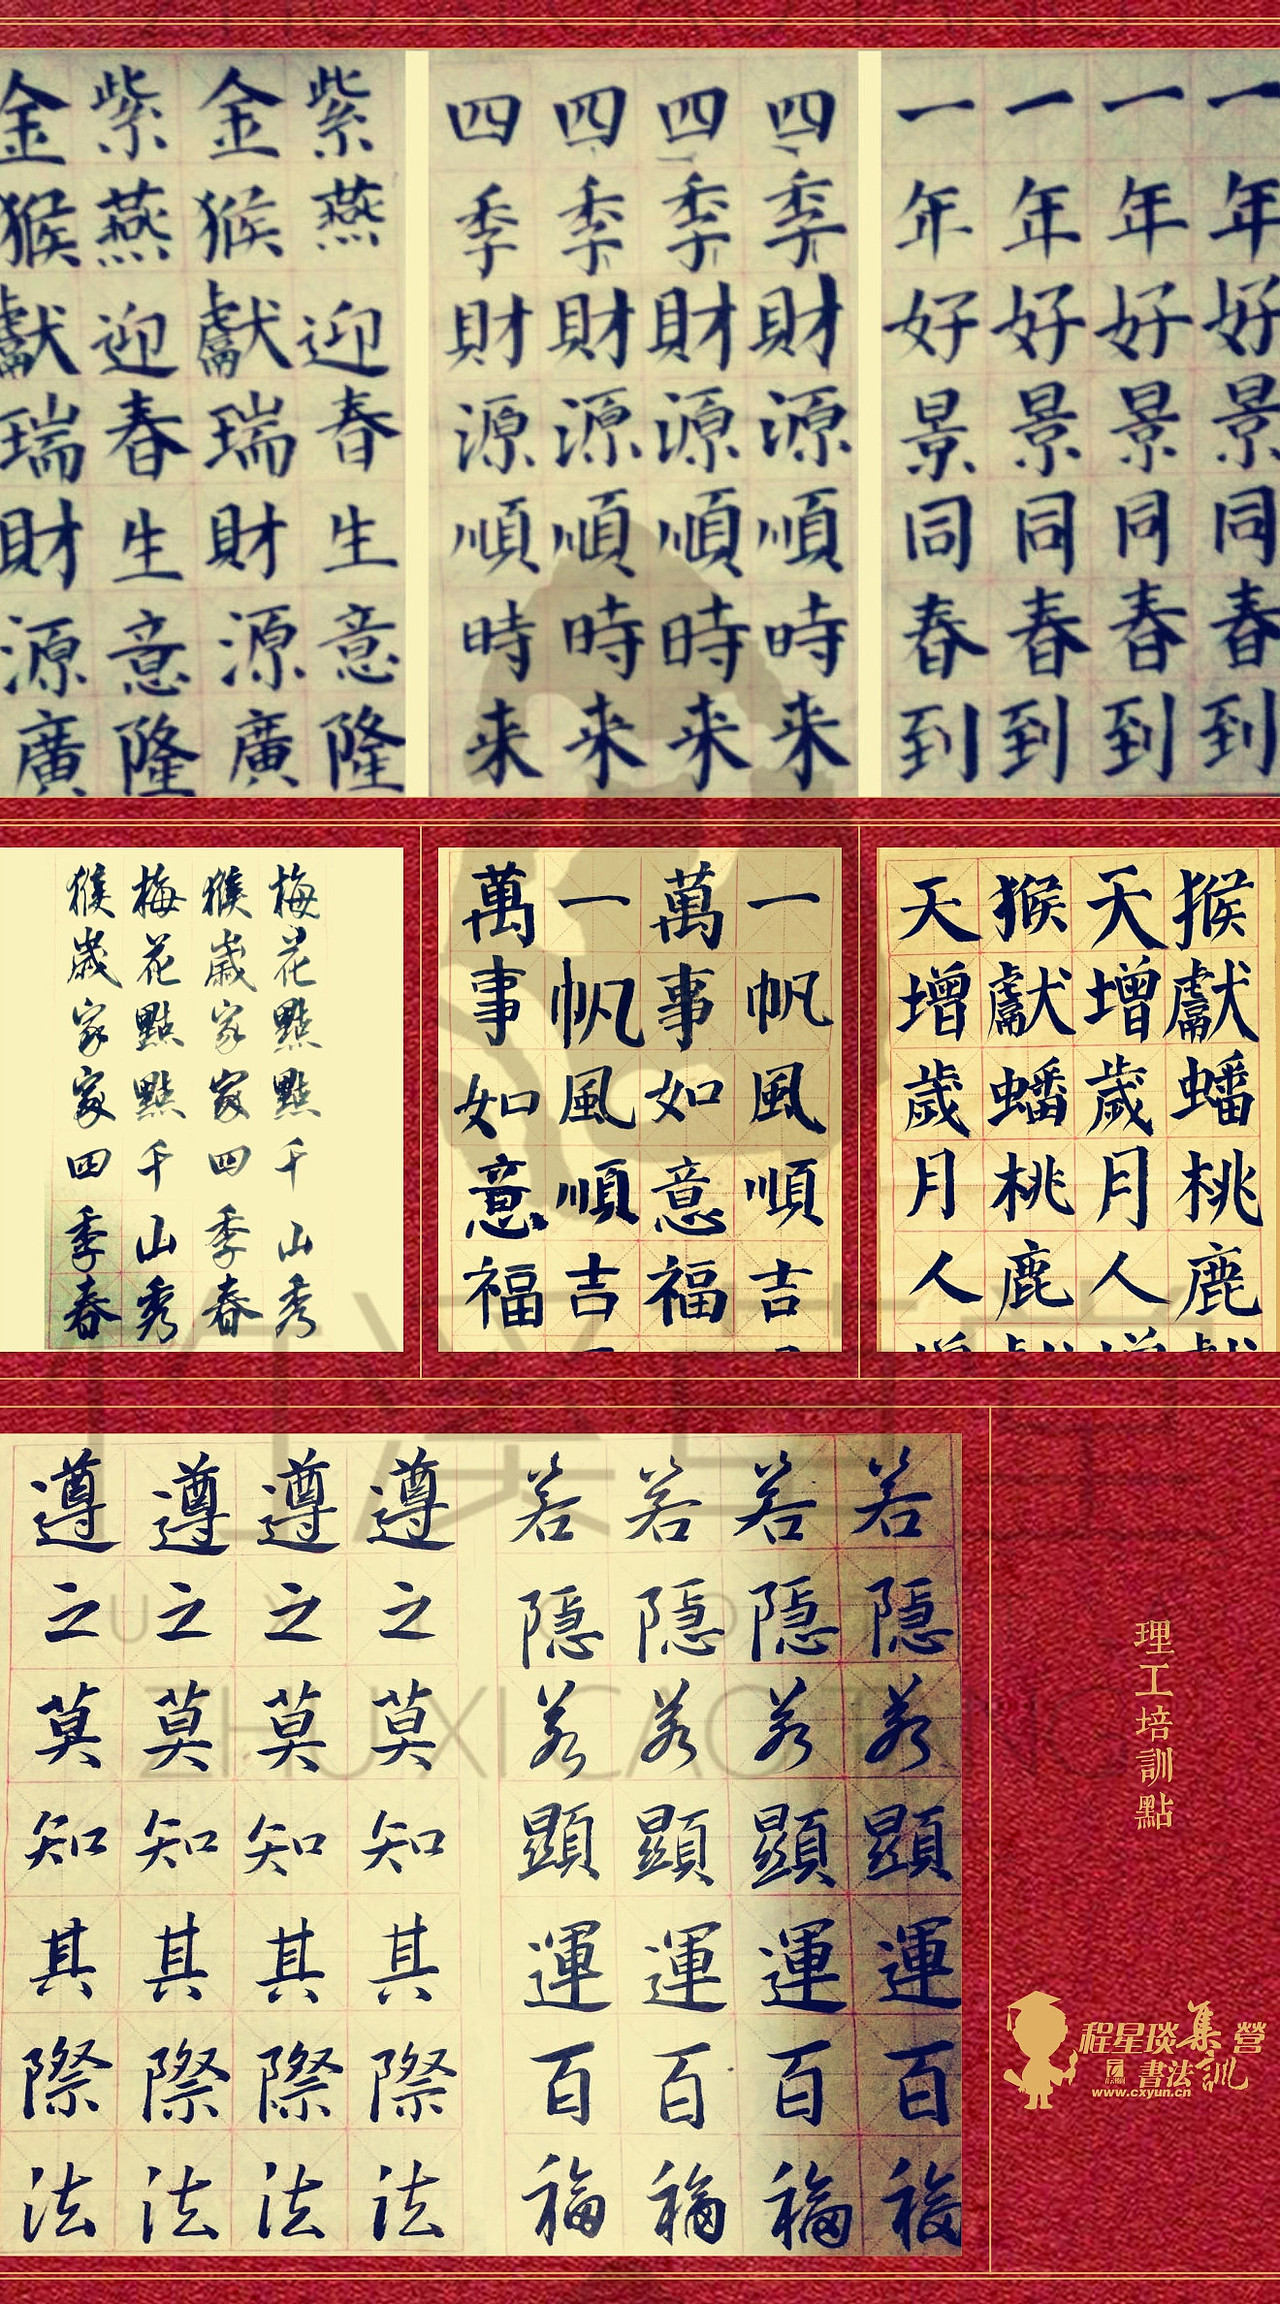 一年好景同春到
一年好景同春到
一年好景同春到
一年好景同春到
四季財源順時来
四季財源順時来
四季財源順時来
四季財源順時来
紫燕迎春生意隆
金猴獻瑞財源廣
紫燕迎春生意隆
金猴獻瑞財源廣
猴獻蟠桃鹿
天增歲月人
猴獻蟠桃鹿
天增歲月人
一帆風順吉
萬事如意福
一帆風順吉
萬事如意福
梅花點點千山秀
猴歲家家四季春
梅花點點千山秀
猴歲家家四季春
若隱若顯運百福
若隱若顯運百福
若隱若顯運百福
若隱若顯運百福
遵之莫知其際法
遵之莫知其際法
遵之莫知其際法
遵之莫知其際法
理工培訓點
程星琰書法集訓營
www.cxyun.cn
ZHUXICAOTANG